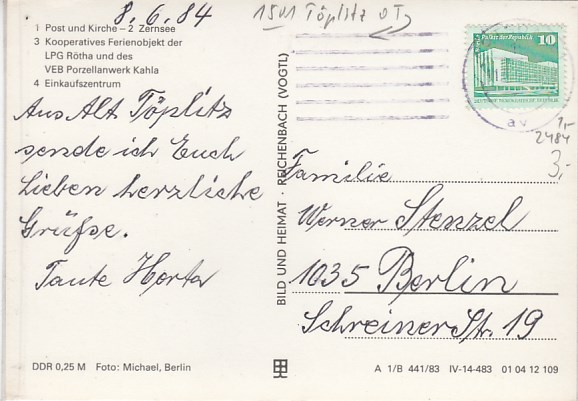 8.6.84
1501 Töplitz OT
1 Post und Kirche – 2 Zernsee
3 Kooperatives Ferienobjekt der
LPG Rötha und des
VEB Porzellanwerk Kahla
4 Einkaufszentrum
Aus Alt Töplitz
sende ich Euch
lieben herzliche
Grüße.
Tante Herta
DDR 0,25 M Foto: Michael, Berlin
BILD UND HEIMAT · REICHENBACH (VOGTL)
Palast der Republik 10
av
1,-
2484
3,-
Familie
Werner Stenzel
1035 Berlin
Schreiner Str. 19
A 1/B 441/83 IV-14-483 01 04 12 109